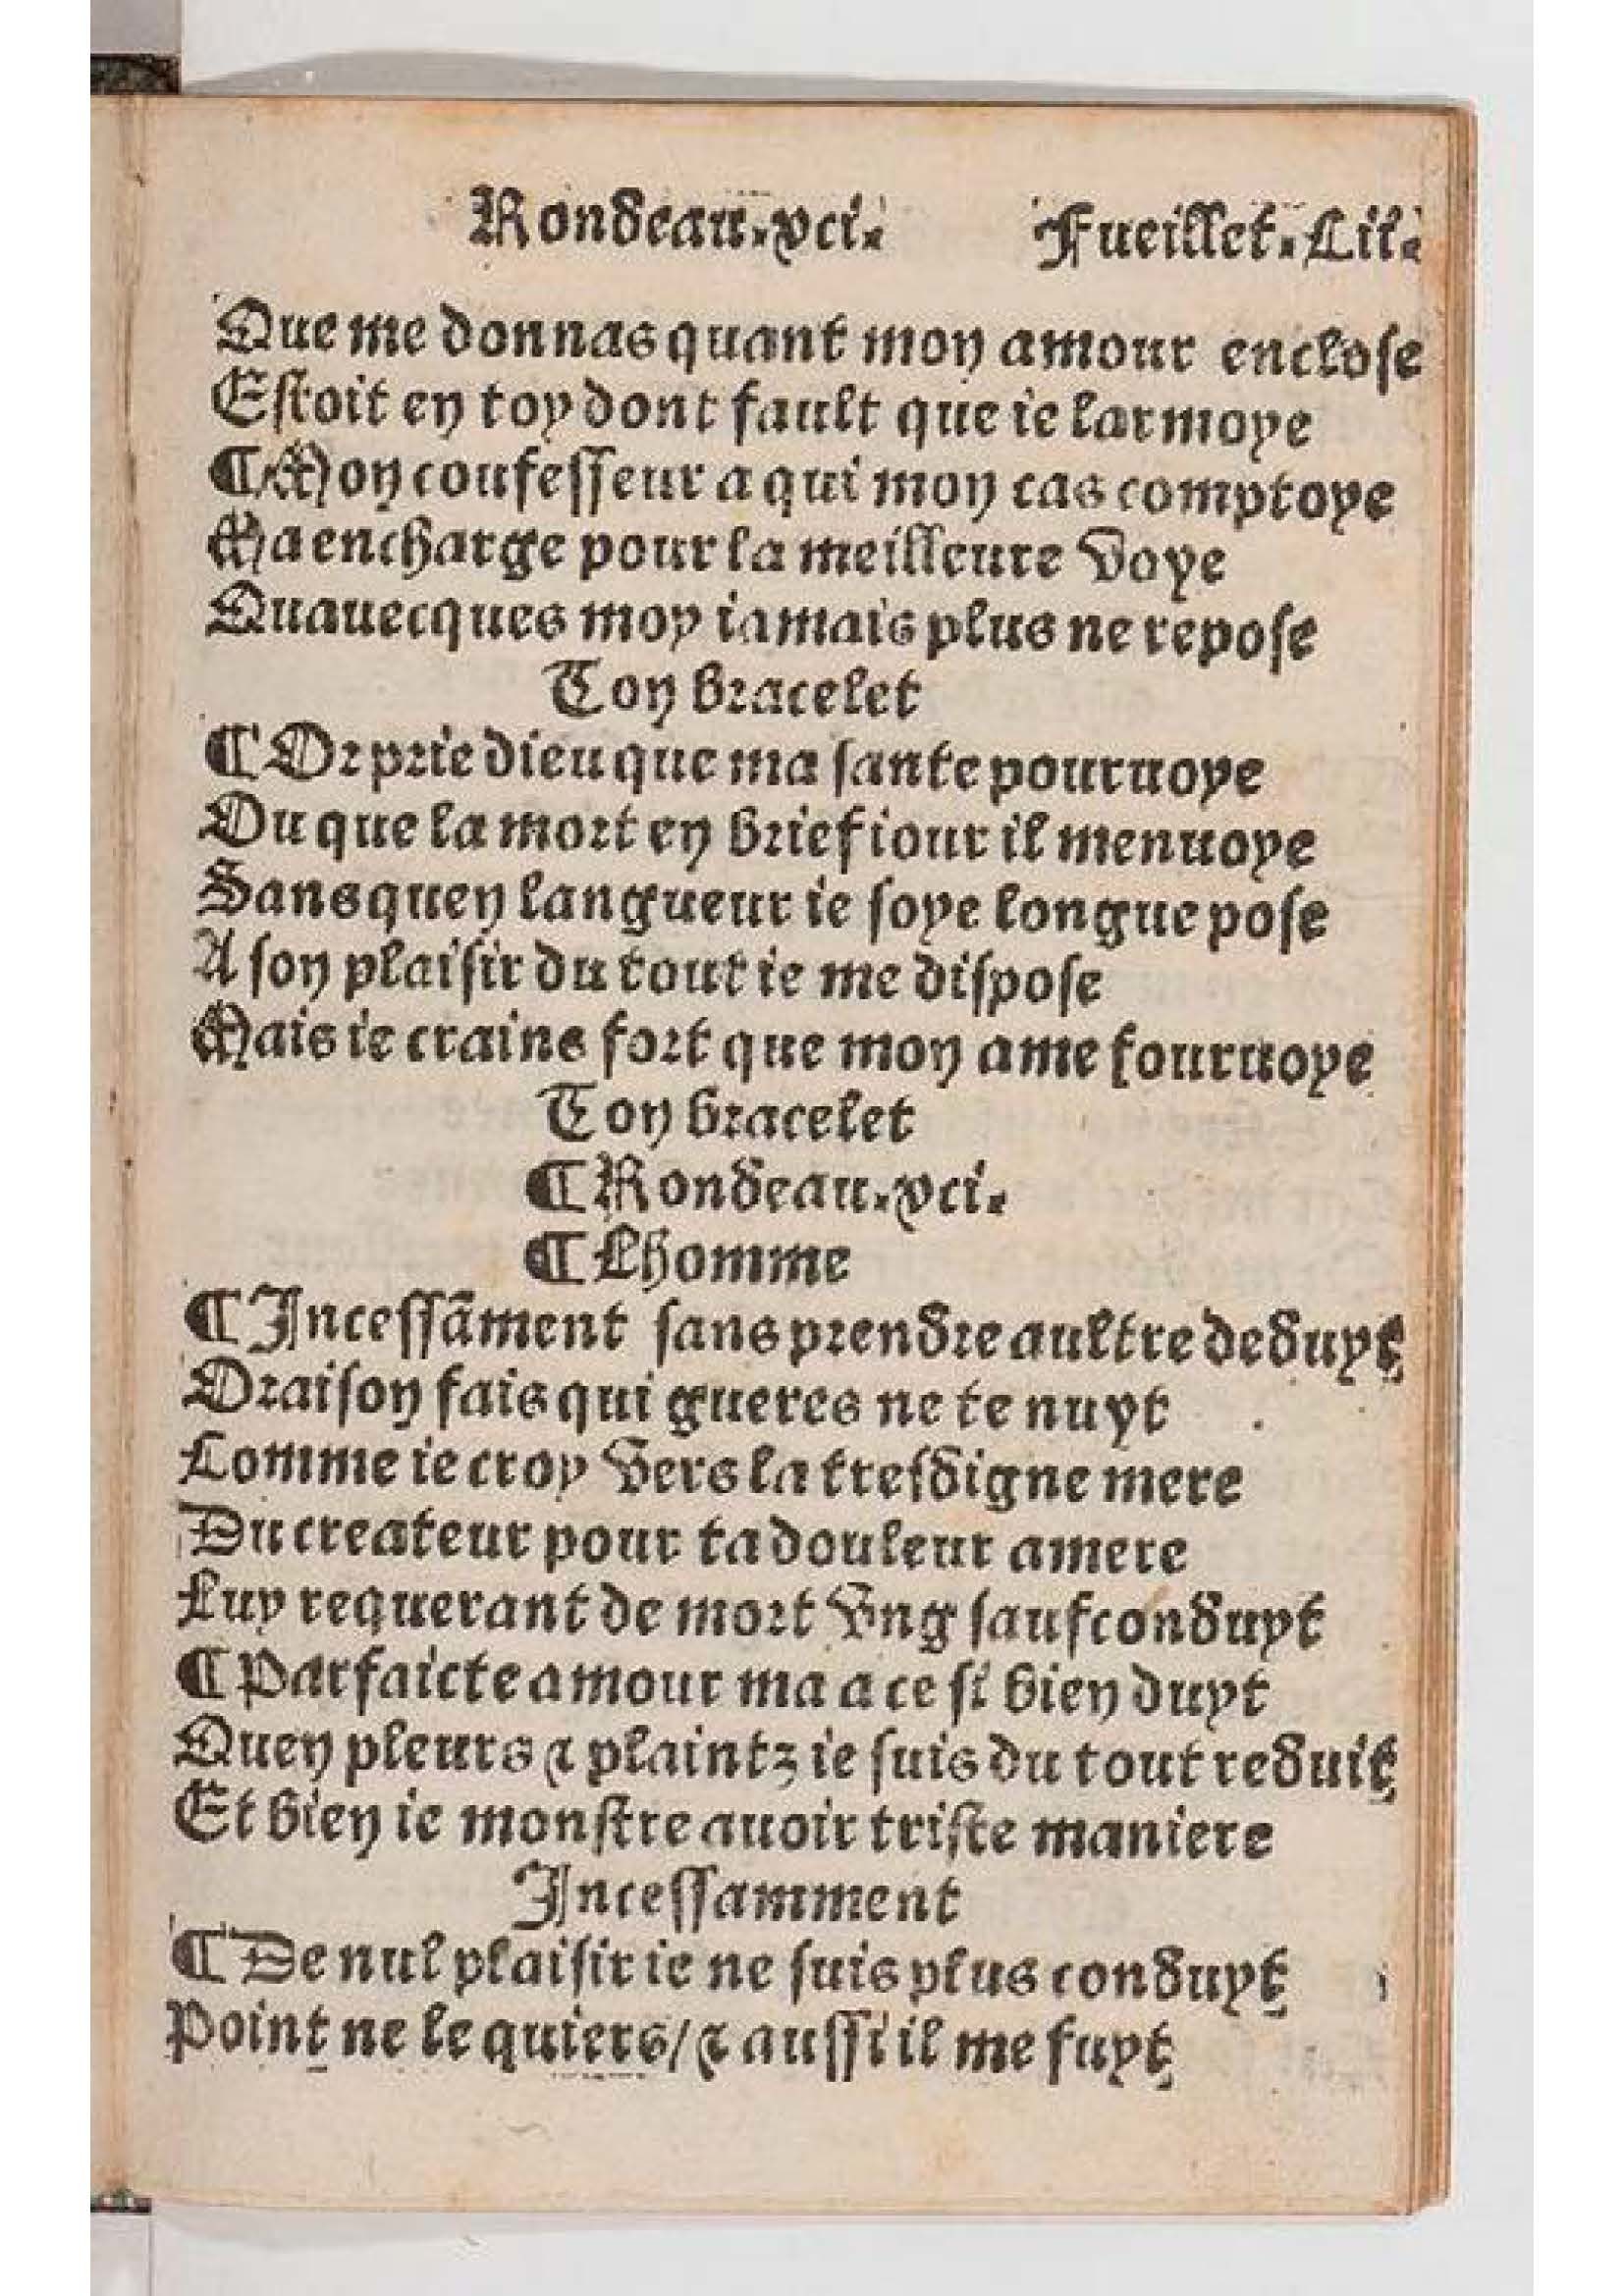 Rondeau.xci. Fueillet.Lii.
Que me donnas quant mon amour enclose
Estoit en toy dont fault que ie larmoye
¶Mon coufesseur a qui mon cas comptoye
Ma encharge pour la meilleure voye
Quauecques moy iamais plus ne repose
Ton bracelet
¶Or prie dieu que ma sante pouruoye
Ou que la mort en brief iour il menuoye
Sans quen langueur ie soye longue pose
A son plaisir du tout ie me dispose
Mais ie crains fort que mon ame fouruoye
Ton bracelet
¶Rondeau.xci.
¶Lhomme
¶Incessãment sans prendre aultre deduyt
Oraison fais qui gueres ne te nuyt
Comme ie croy vers la tresdigne mere
Du createur pour ta douleur amere
Luy requerant de mort vng saufconduyt
¶Parfaicte amour ma a ce si bien duyt
Quen pleurs & plaintz ie suis du tout reduit
Et bien ie monstre auoir triste maniere
Incessamment
¶De nul plaisir ie ne suis plus conduyt
Point ne le quiers/& aussi il me fuyt